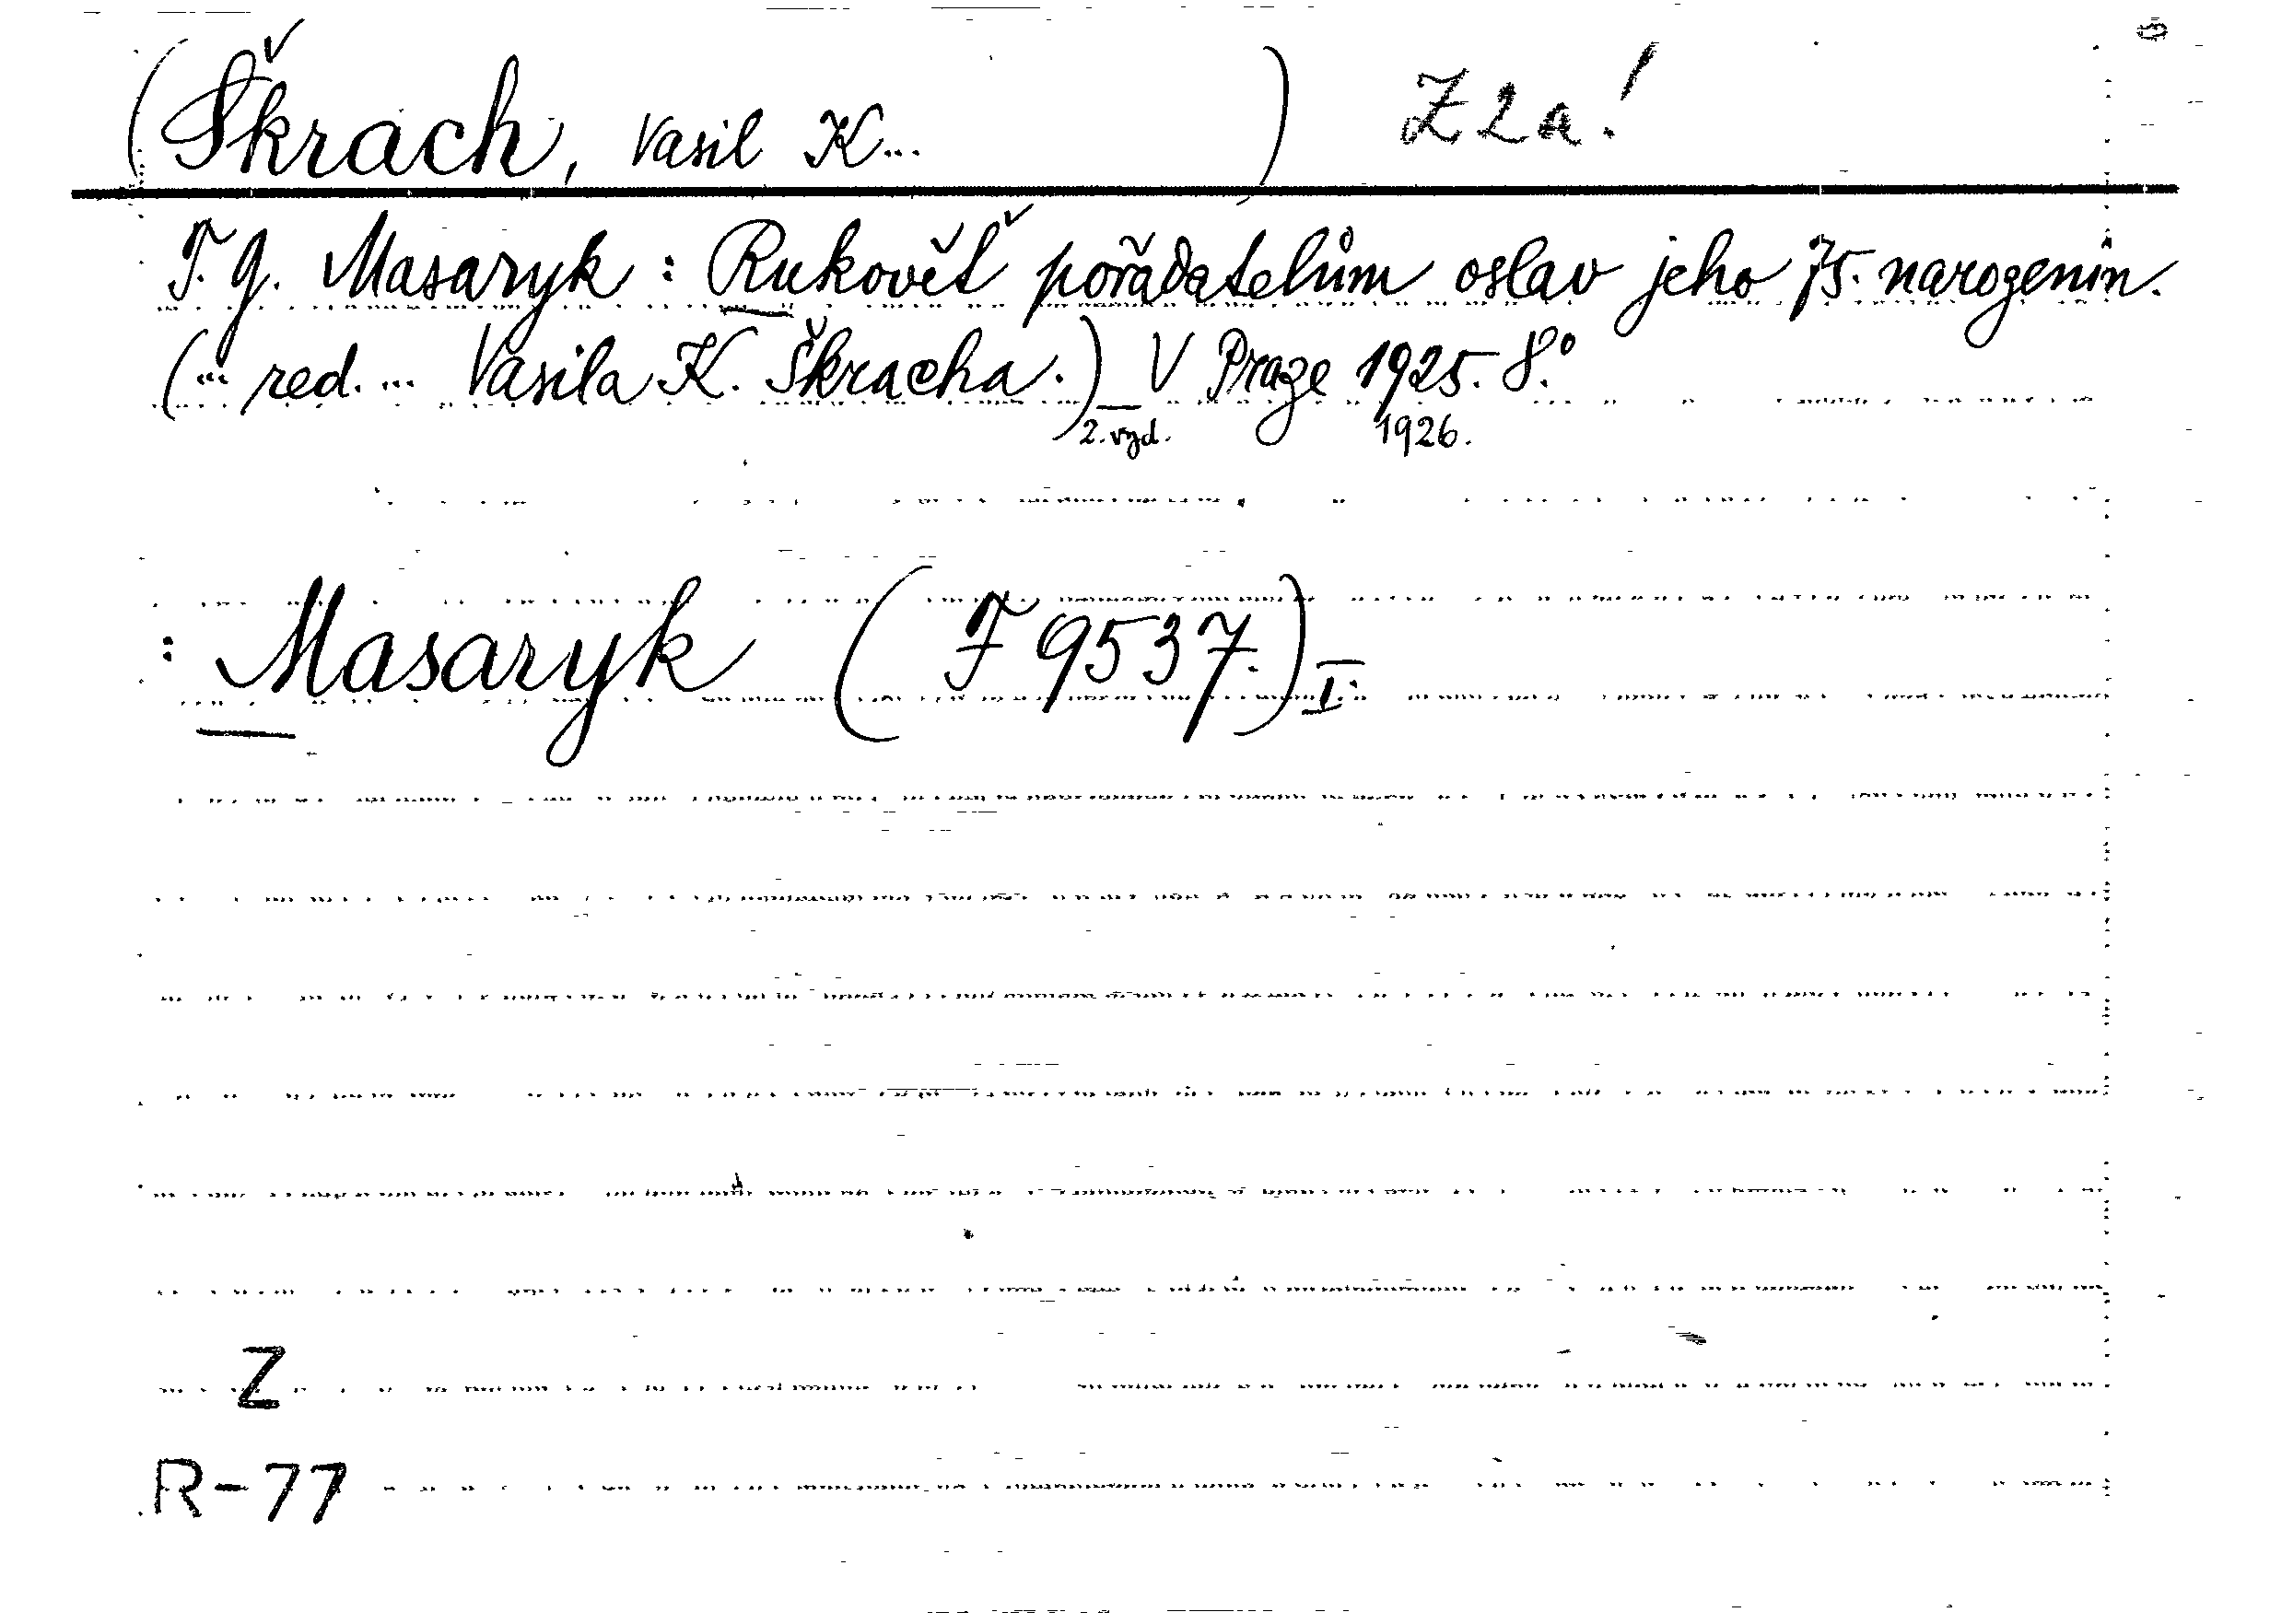 (Škrach, Vasil K... ) Z2a!
T. G. Masaryk : Rukověť pořadatelům oslav jeho 75. narozenin.
(... red. ... Vasila K. Škracha.) V Praze 1925. 8.°
2. vyd. 1926.
: Masaryk (F 9537.) I.
Z
R-77